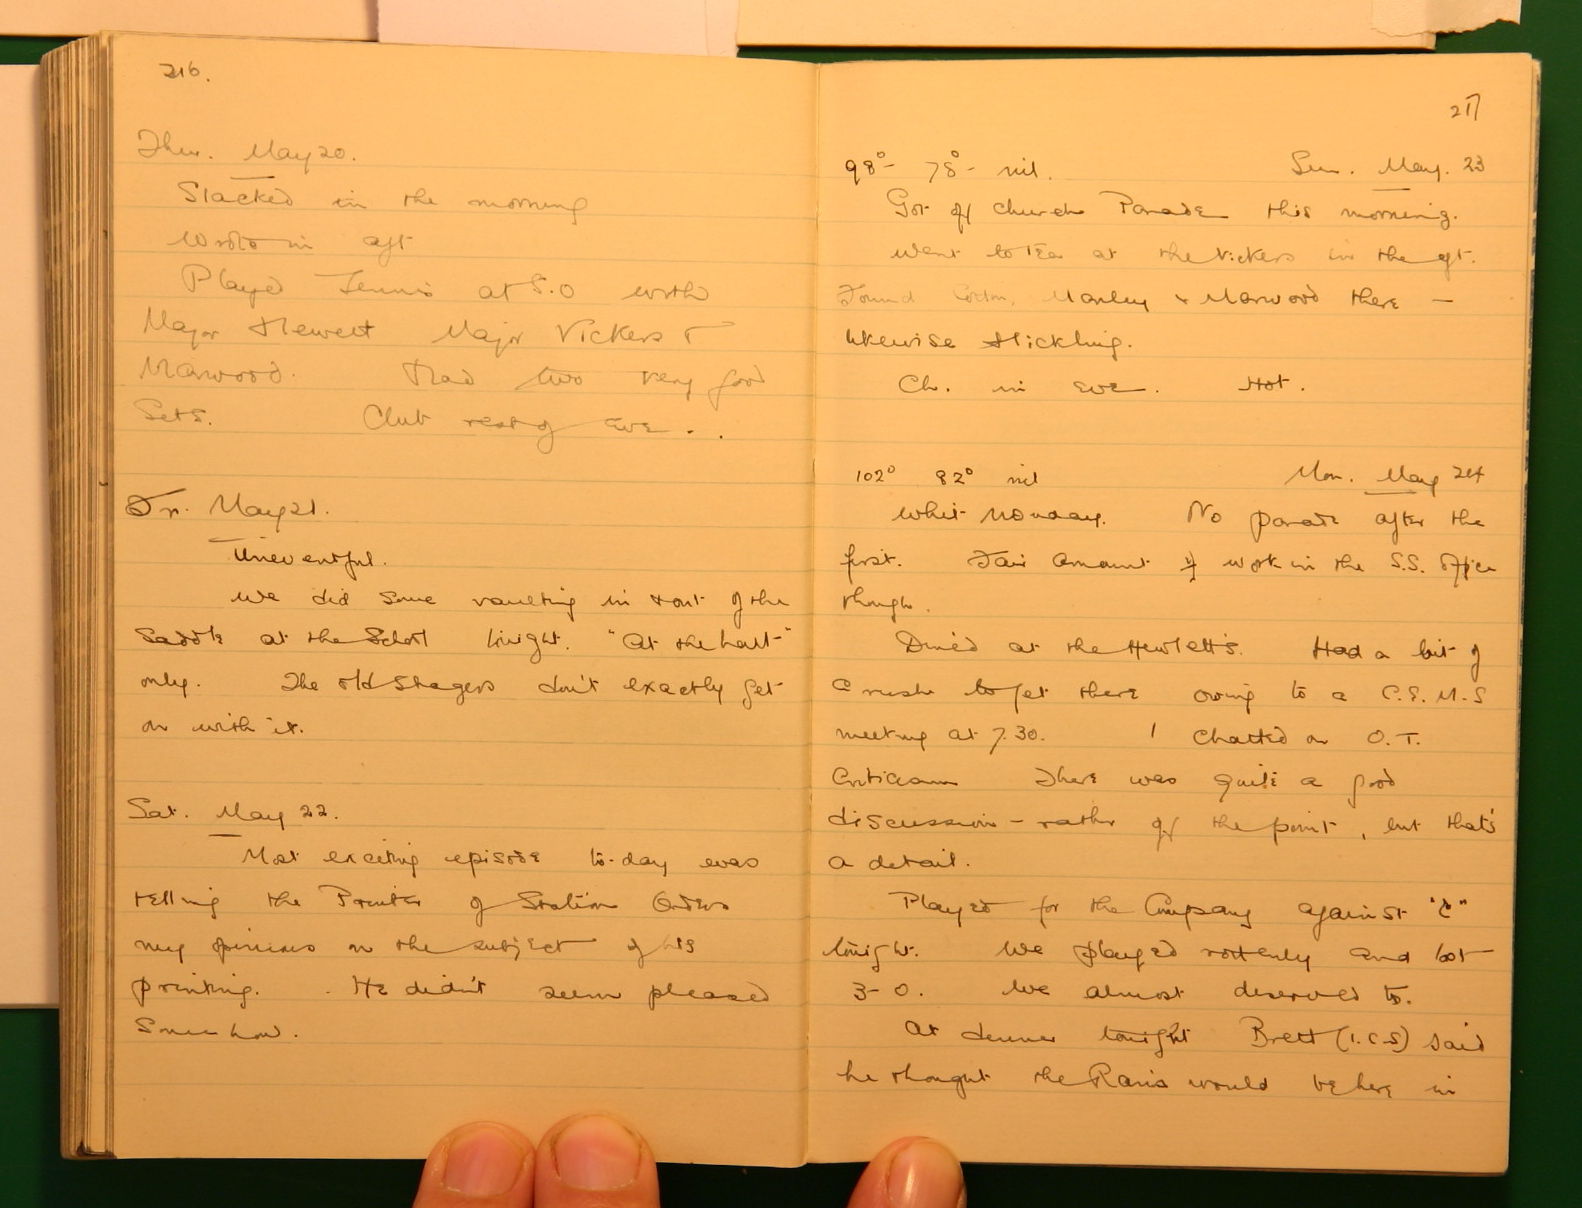 216.
Thur. May 20.
Slacked in the morning
Wrote in aft
Played Tennis at 5.0 with
Major Hewett Major Vickers &
Marwood. Had two very good
Sets. Club rest of Eve.
Fri. May 21.
Uneventful.
We did some vaulting in front of the
Saddle at the School tonight. "At the halt"
only. The old stagers don't exactly get
on with it.
Sat. May 22.
Most exciting episode to-day was
telling the Printer of Station Orders
my opinions on the subject of his
printing. He didn't seem pleased
Somehow.
217
98° - 78° - nil. Sun. May. 23
Got off Church Parade this morning.
Went to Tea at the Vickers in the aft.
Found Manley & Marwood there –
likewise Stickling.
Ch. in Eve. Hot.
102° 82° nil Mon. May 24
Whit Monday. No parade after the
first. Fair amount of work in the S.S. Office
though.
Dined at the Hewletts. Had a bit of
a rush to get there owing to a C.E.M.S
meeting at 7.30. I Chatted on O.T.
Criticism There was quite a good
discussion – rather off the point, but that's
a detail.
Played for the Company against "C"
tonight. We played rottenly and lost
3-0. We almost deserved to.
At dinner tonight Brett (I.C.S) said
he thought the Rains would be here in